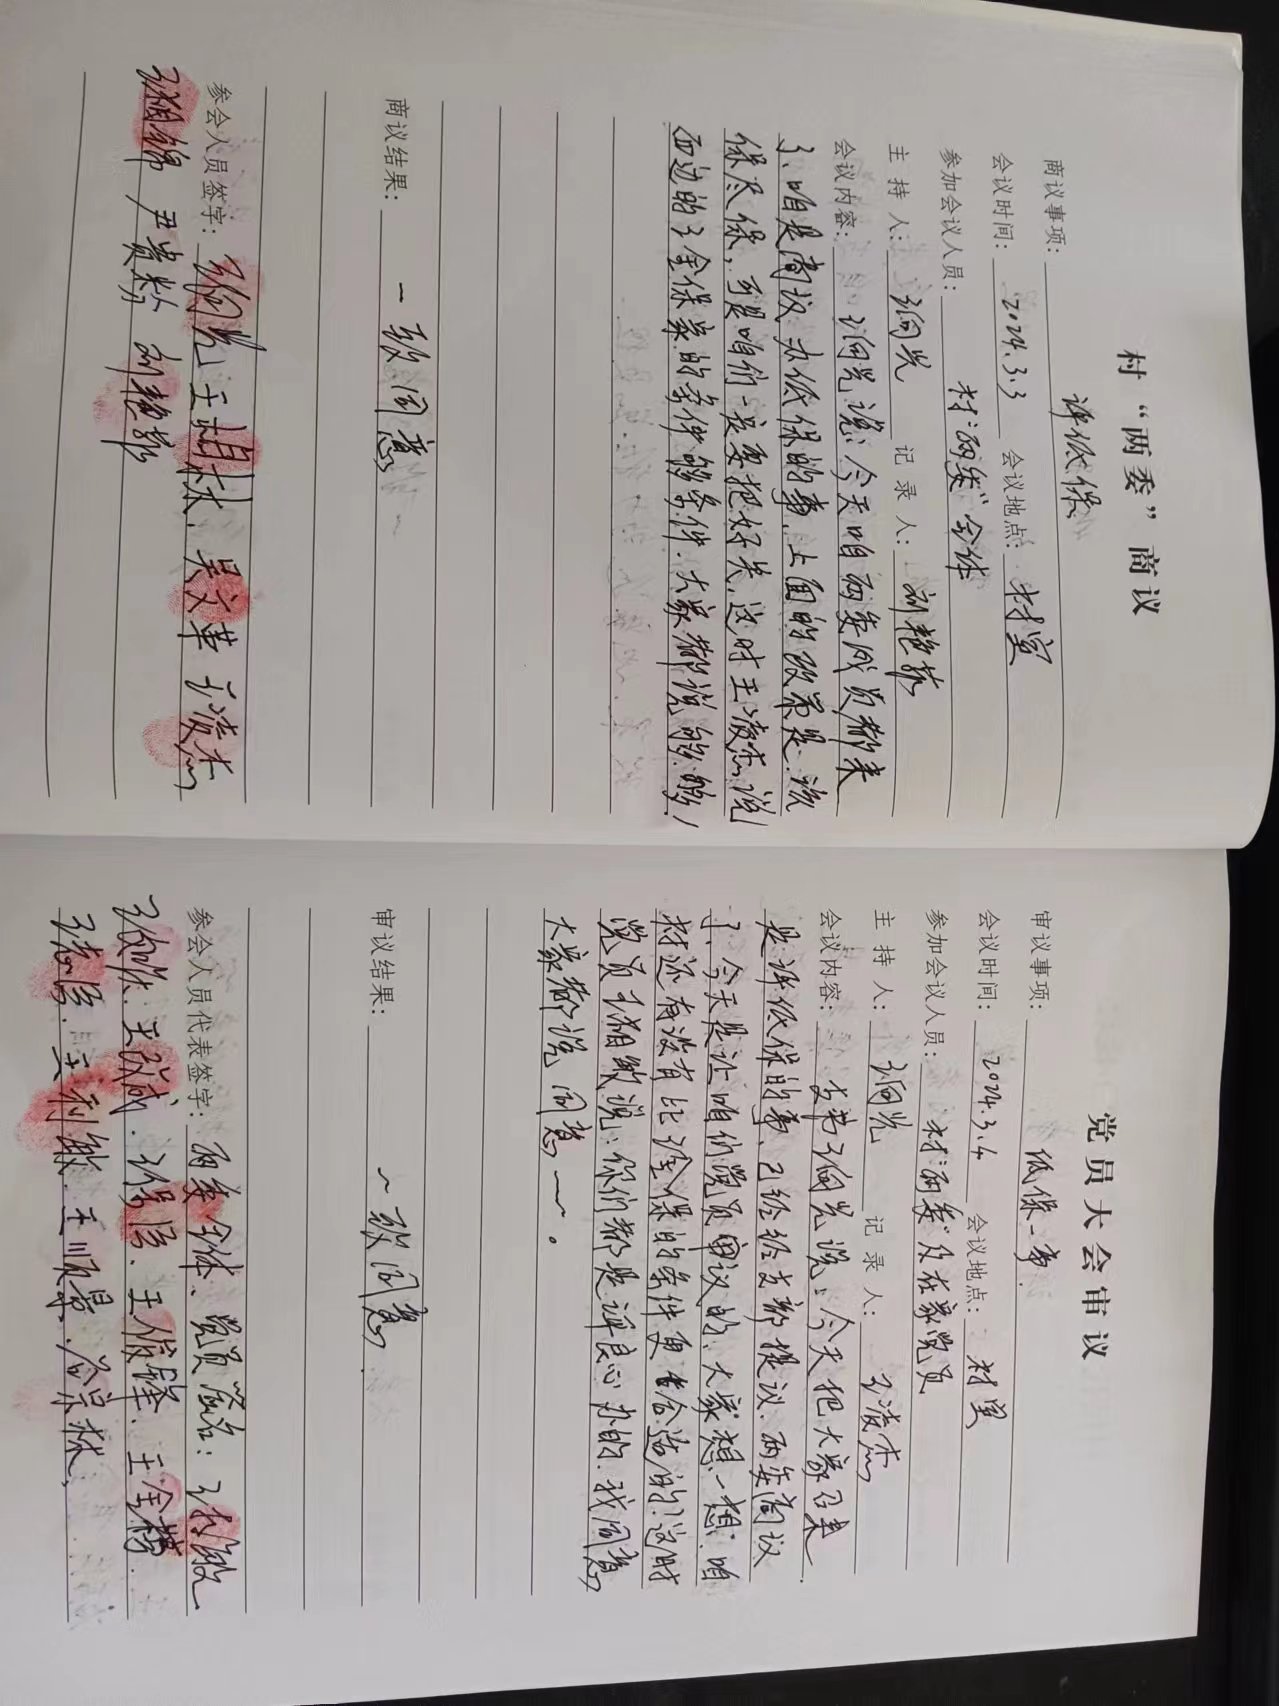 村“两委”商议
商议事项: 评低保
会议时间: 2024.3.3 会议地点: 村室
参加会议人员: 村“两委”全体
主 持 人: 张向光 记 录 人: 刘艳敏
会议内容: 张向光说: 今天咱两委成员都来
了、咱是商议办低保的事、上面的政策是、该
保尽保, 可是咱们一定要把好关, 这时王凌杰说
西边的王全保家的条件够条件、大家都说够、够!
商议结果: 一致同意
参会人员签字: 张向光 王相林、吴文华 王凌杰
尹贵粉 刘艳敏
党员大会审议
审议事项: 低保一事.
会议时间: 2024.3.4 会议地点: 村室
参加会议人员: 村“两委”及在家党员
主 持 人: 张向光 记 录 人: 王凌杰
会议内容: 支书张向光说: 今天把大家召来
是评低保的事、已经经支部提议、两委商议
了、今天是让咱们党员审议的、大家想一想: 咱
村还有没有比王全保的条件更合适的! 这时
党员 说: 你们都是评良心办的、我同意
大家都说同意一一。
审议结果: 一致同意
参会人员代表签字: 两委全体、党员签名:
王俊锋、王全
王利敏、王顺景、